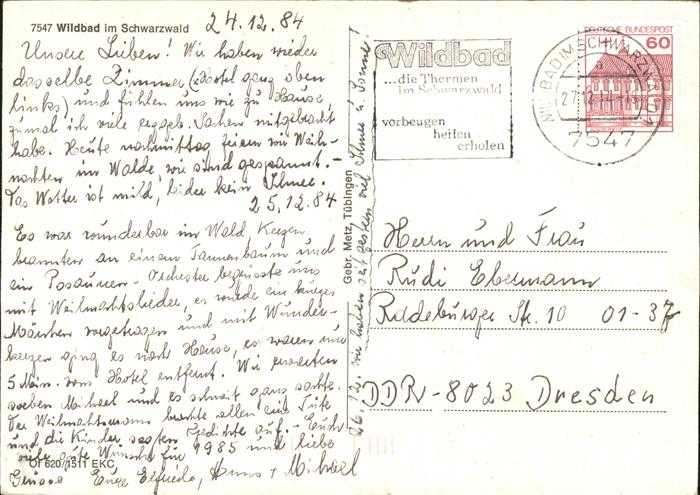 7547 Wildbad im Schwarzwald 24.12.84
Unsere Lieben! Wir haben wieder
dasselbe Zimmer (Hotel ganz oben
links) und fühlen uns wie zu Hause,
zumal ich viele ergeb. Sachen mitgebracht
habe. Heute nachmittag feiern wir Weih-
nachten im Walde, wir sind gespannt. -
Das Wetter ist mild, leider kein Schnee.
25.12.84
Es war wunderbar im Wald Kerzen
brannten an einem Tannenbaum und
ein Posaunen-Orchester begrüsste uns
mit Weihnachtslieder, es wurde ein kurzes
Märchen vorgetragen und mit Wunder-
kerzen ging es nach Hause, es waren nur
5 Min. vom Hotel entfernt. Wir erwarten
soeben Michael und es schneit ganz sachte.
Der Weihnachtsmann brachte allen eine Tüte
und die Kinder sagten Gedichte auf. - Euch
viele gute Wünsche für 1985 und liebe
Grüsse Eure Elfriede, Hanns + Michael
Of 620/1511 EKC
26.12. wir haben seit gestern viel Schnee u. Sonne!
Gebr. Metz, Tübingen
Wildbad
...die Thermen
im Schwarzwald
vorbeugen
heilen
erholen
WILDBAD IM SCHWARZWALD
a
27.12.84
7547
DEUTSCHE BUNDESPOST
60
Herrn und Frau
Rudi Ebermann
Radeburger Str. 10 01-37
DDR-8023 Dresden